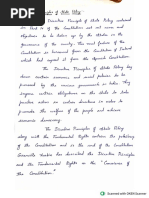 Principles of State Policy
The Directive Principle of State Policy enshrined
in Part IV of the Constitution
objectives to be taken up by the States in the
governance of the country. This novel feature of the
Constitution is borrowed from the Constitution of Ireland
which had copied it from the Spanish Constitution.
The Directive Principles of State Policy has
certain economic and social policies to be
pursued by the
impose certain obligations on the state to take
positive action in certain directions in order to
promote the welfare of the people and achieve
economic democracy.
The Directive Principles of State Policy
along with the Fundamental Rights contain the philosophy of
the Constitution and is the soul of the Constitution
Granville Austin has described the Directive Principles
and the Fundamental Rights as the "Conscience of
the Constitution".
CS Scanned with CamScanner